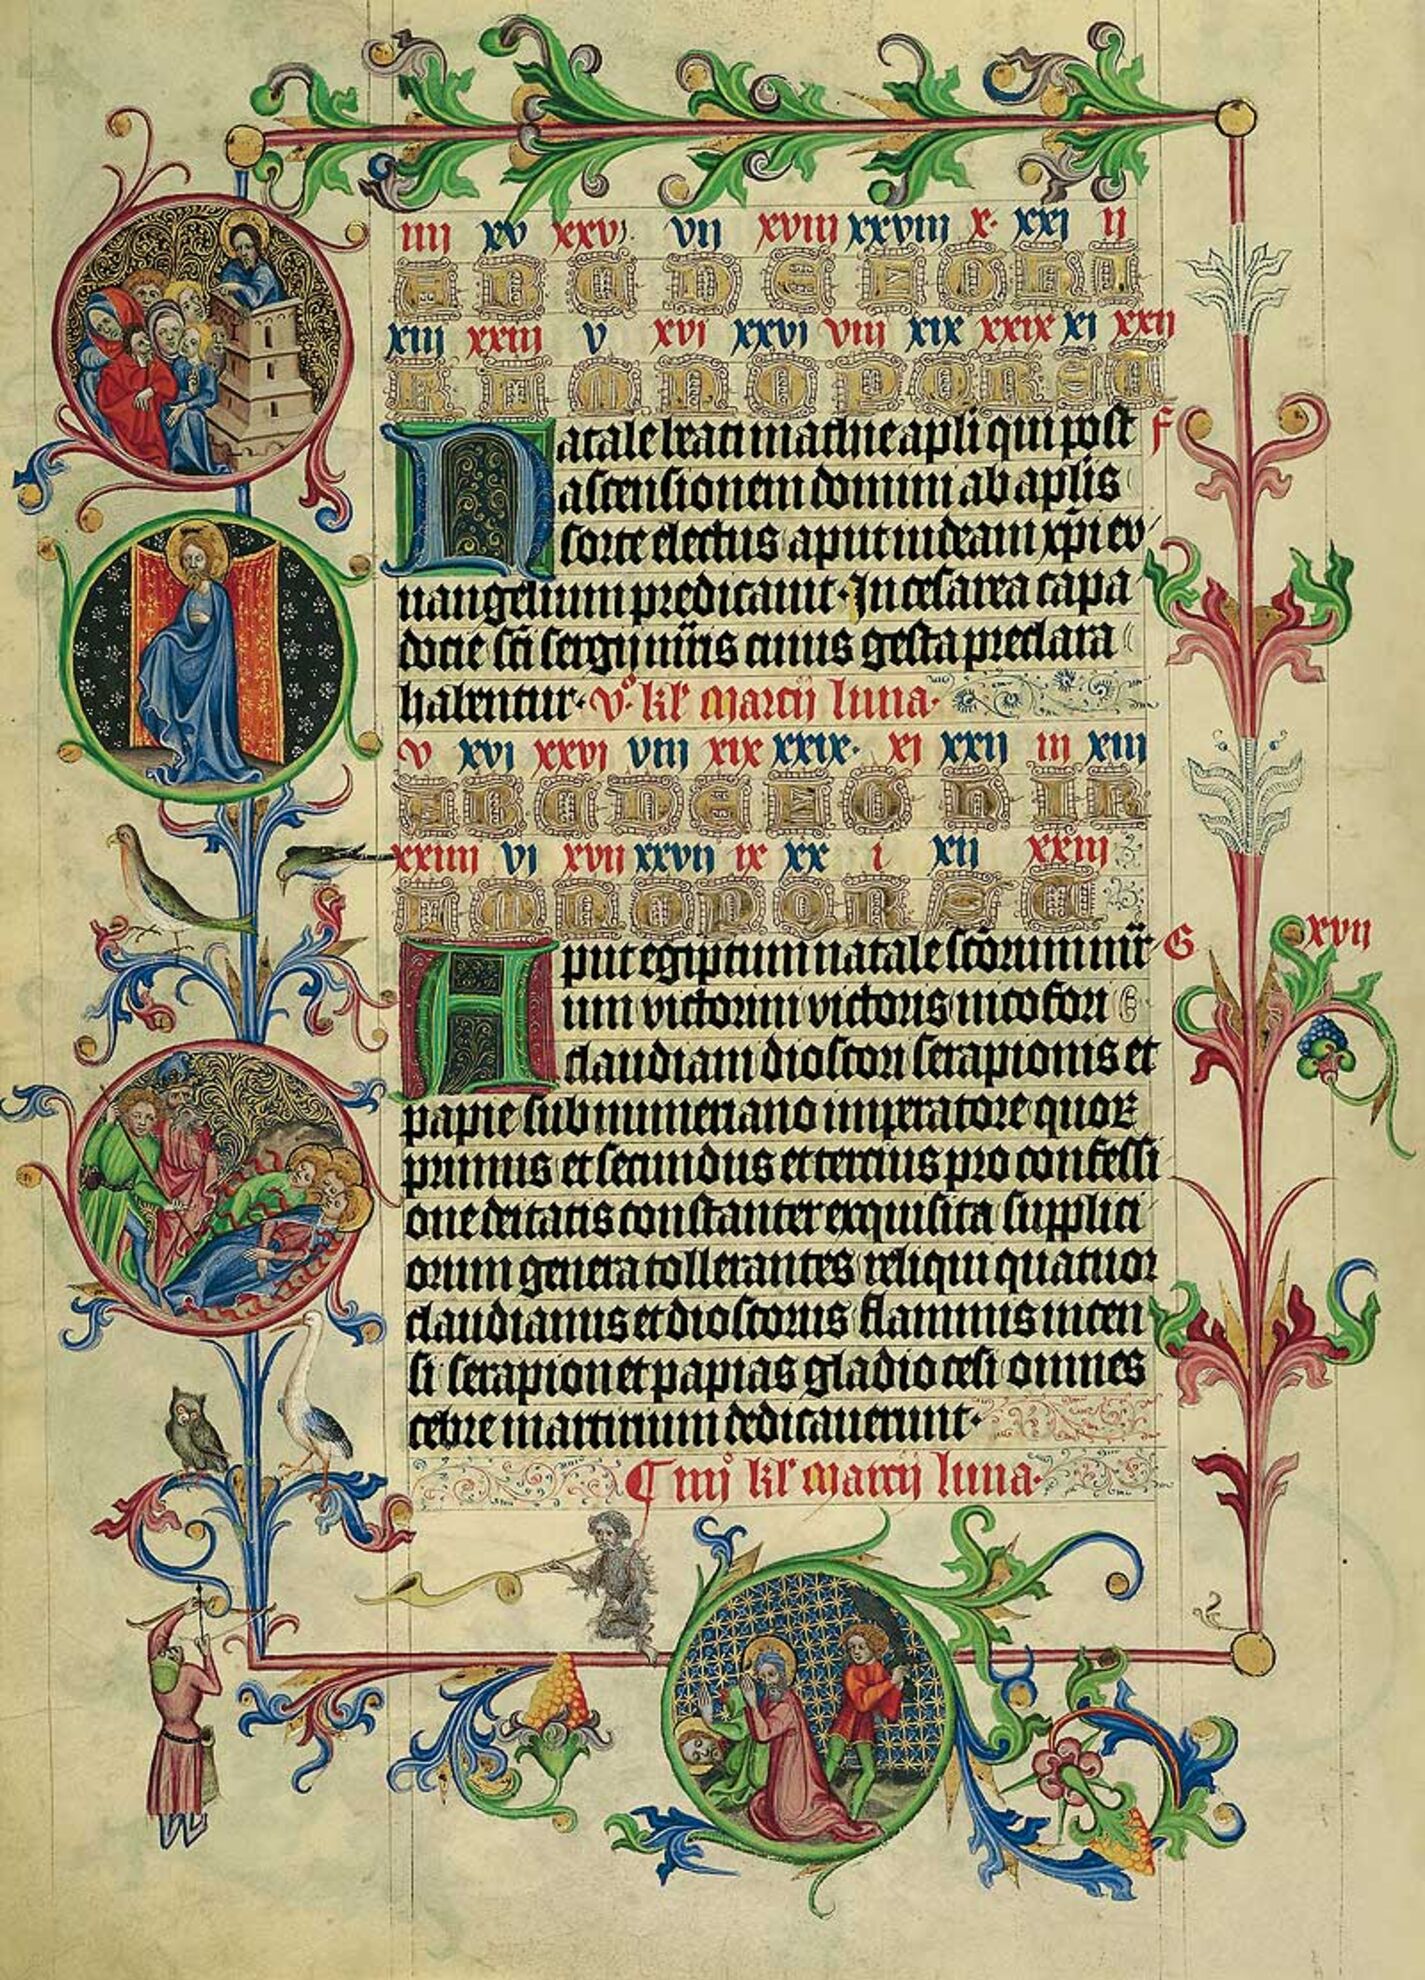 iiii xv xxvi vii xviii xxviii x· xxi ii
A B C D E F G H I
xiii xxiii v xvi xxvi viii xix xxix xi xxii
K L M N O P Q R S T
Natale beati mathie apli qui post F
ascensionem domini ab aplis
sorte electus aput iudeam xpi eu
uangelium predicauit· In cesarea capa
docie sci sergii mris cuius gesta preclara
habentur· v° kl' marcij luna·
v xvi xxvi viii xix xxix· xi xxii iii xiii
A B C D E F G H I K
xxiiii vi xvii xxvii ix xx i xii xxiii
L M N O P Q R S T
Aput egiptum natale scorum mr G xvii
um victorini victoris nicofori
claudiani dioscori serapionis et
papie sub numeriano imperatore quor
primus et secundus et tercius pro confessi
one deitatis constanter exquisita supplici
orum genera tollerantes reliqui quatuor
claudianus et dioscorus flammis incen
si serapion et papias gladio cesi omnes
martirium dedicauerunt·
¶ iiij° kl' marcij luna·